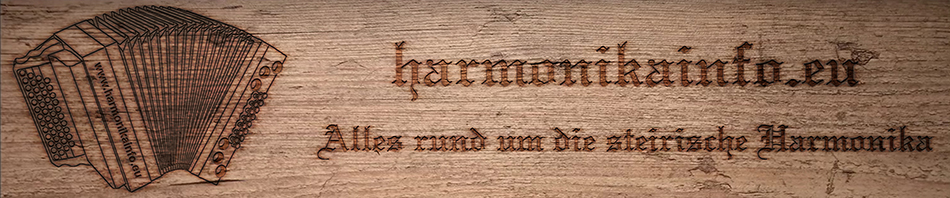 www.harmonikainfo.eu
harmonikainfo.eu
Alles rund um die steirische Harmonika